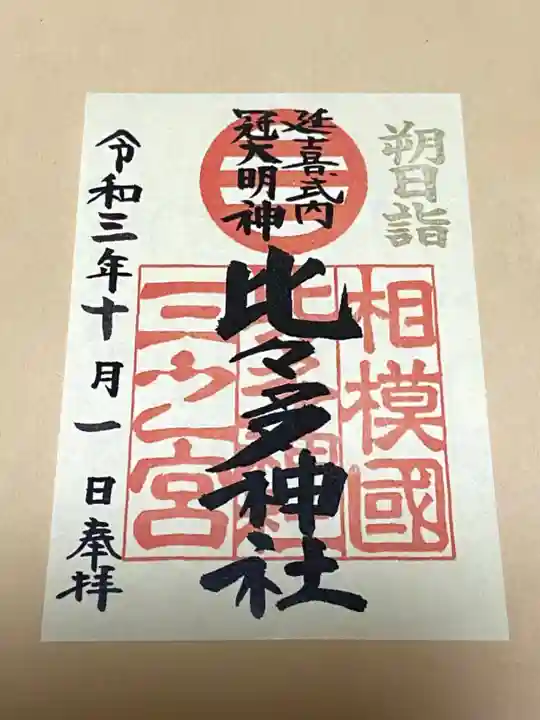 朔日詣
延喜式内
冠大明神
比々多神社
相模國
三之宮
令和三年十月一日奉拝